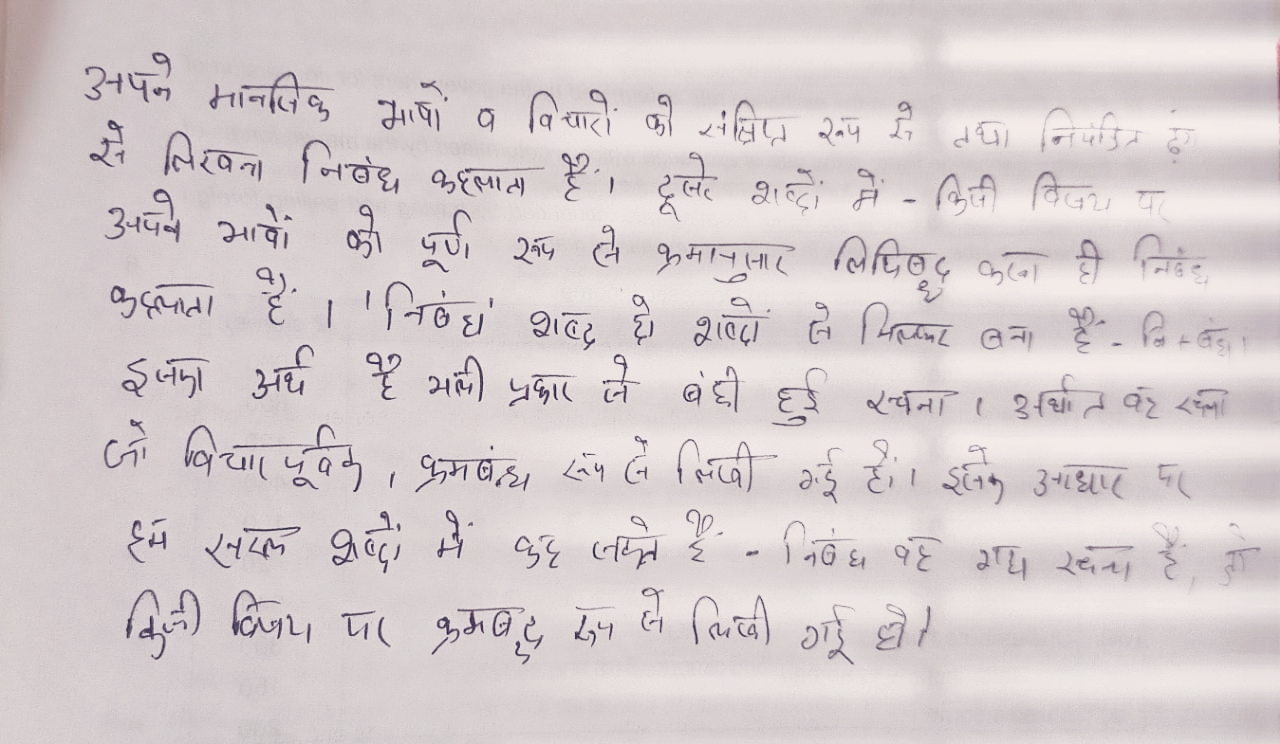 अपने मानसिक भावों व विचारों को संक्षिप्त रूप से तथा नियंत्रित ढंग
से लिखना निबंध कहलाता है। दूसरे शब्दों में - किसी विषय पर
अपने भावों को पूर्ण रूप से क्रमानुसार लिपिबद्ध करना ही निबंध
कहलाता है। 'निबंध' शब्द दो शब्दों से मिलकर बना है - नि + बंध।
इसका अर्थ है भली प्रकार से बंधी हुई रचना। अर्थात वह रचना
जो विचारपूर्वक, क्रमबंध्ध रूप से लिखी गई हैं। इसके आधार पर
हम सरल शब्दों में कह सकते हैं - निबंध वह गद्य रचना है, जो
किसी विषय पर क्रमबद्ध रूप से लिखी गई हो।